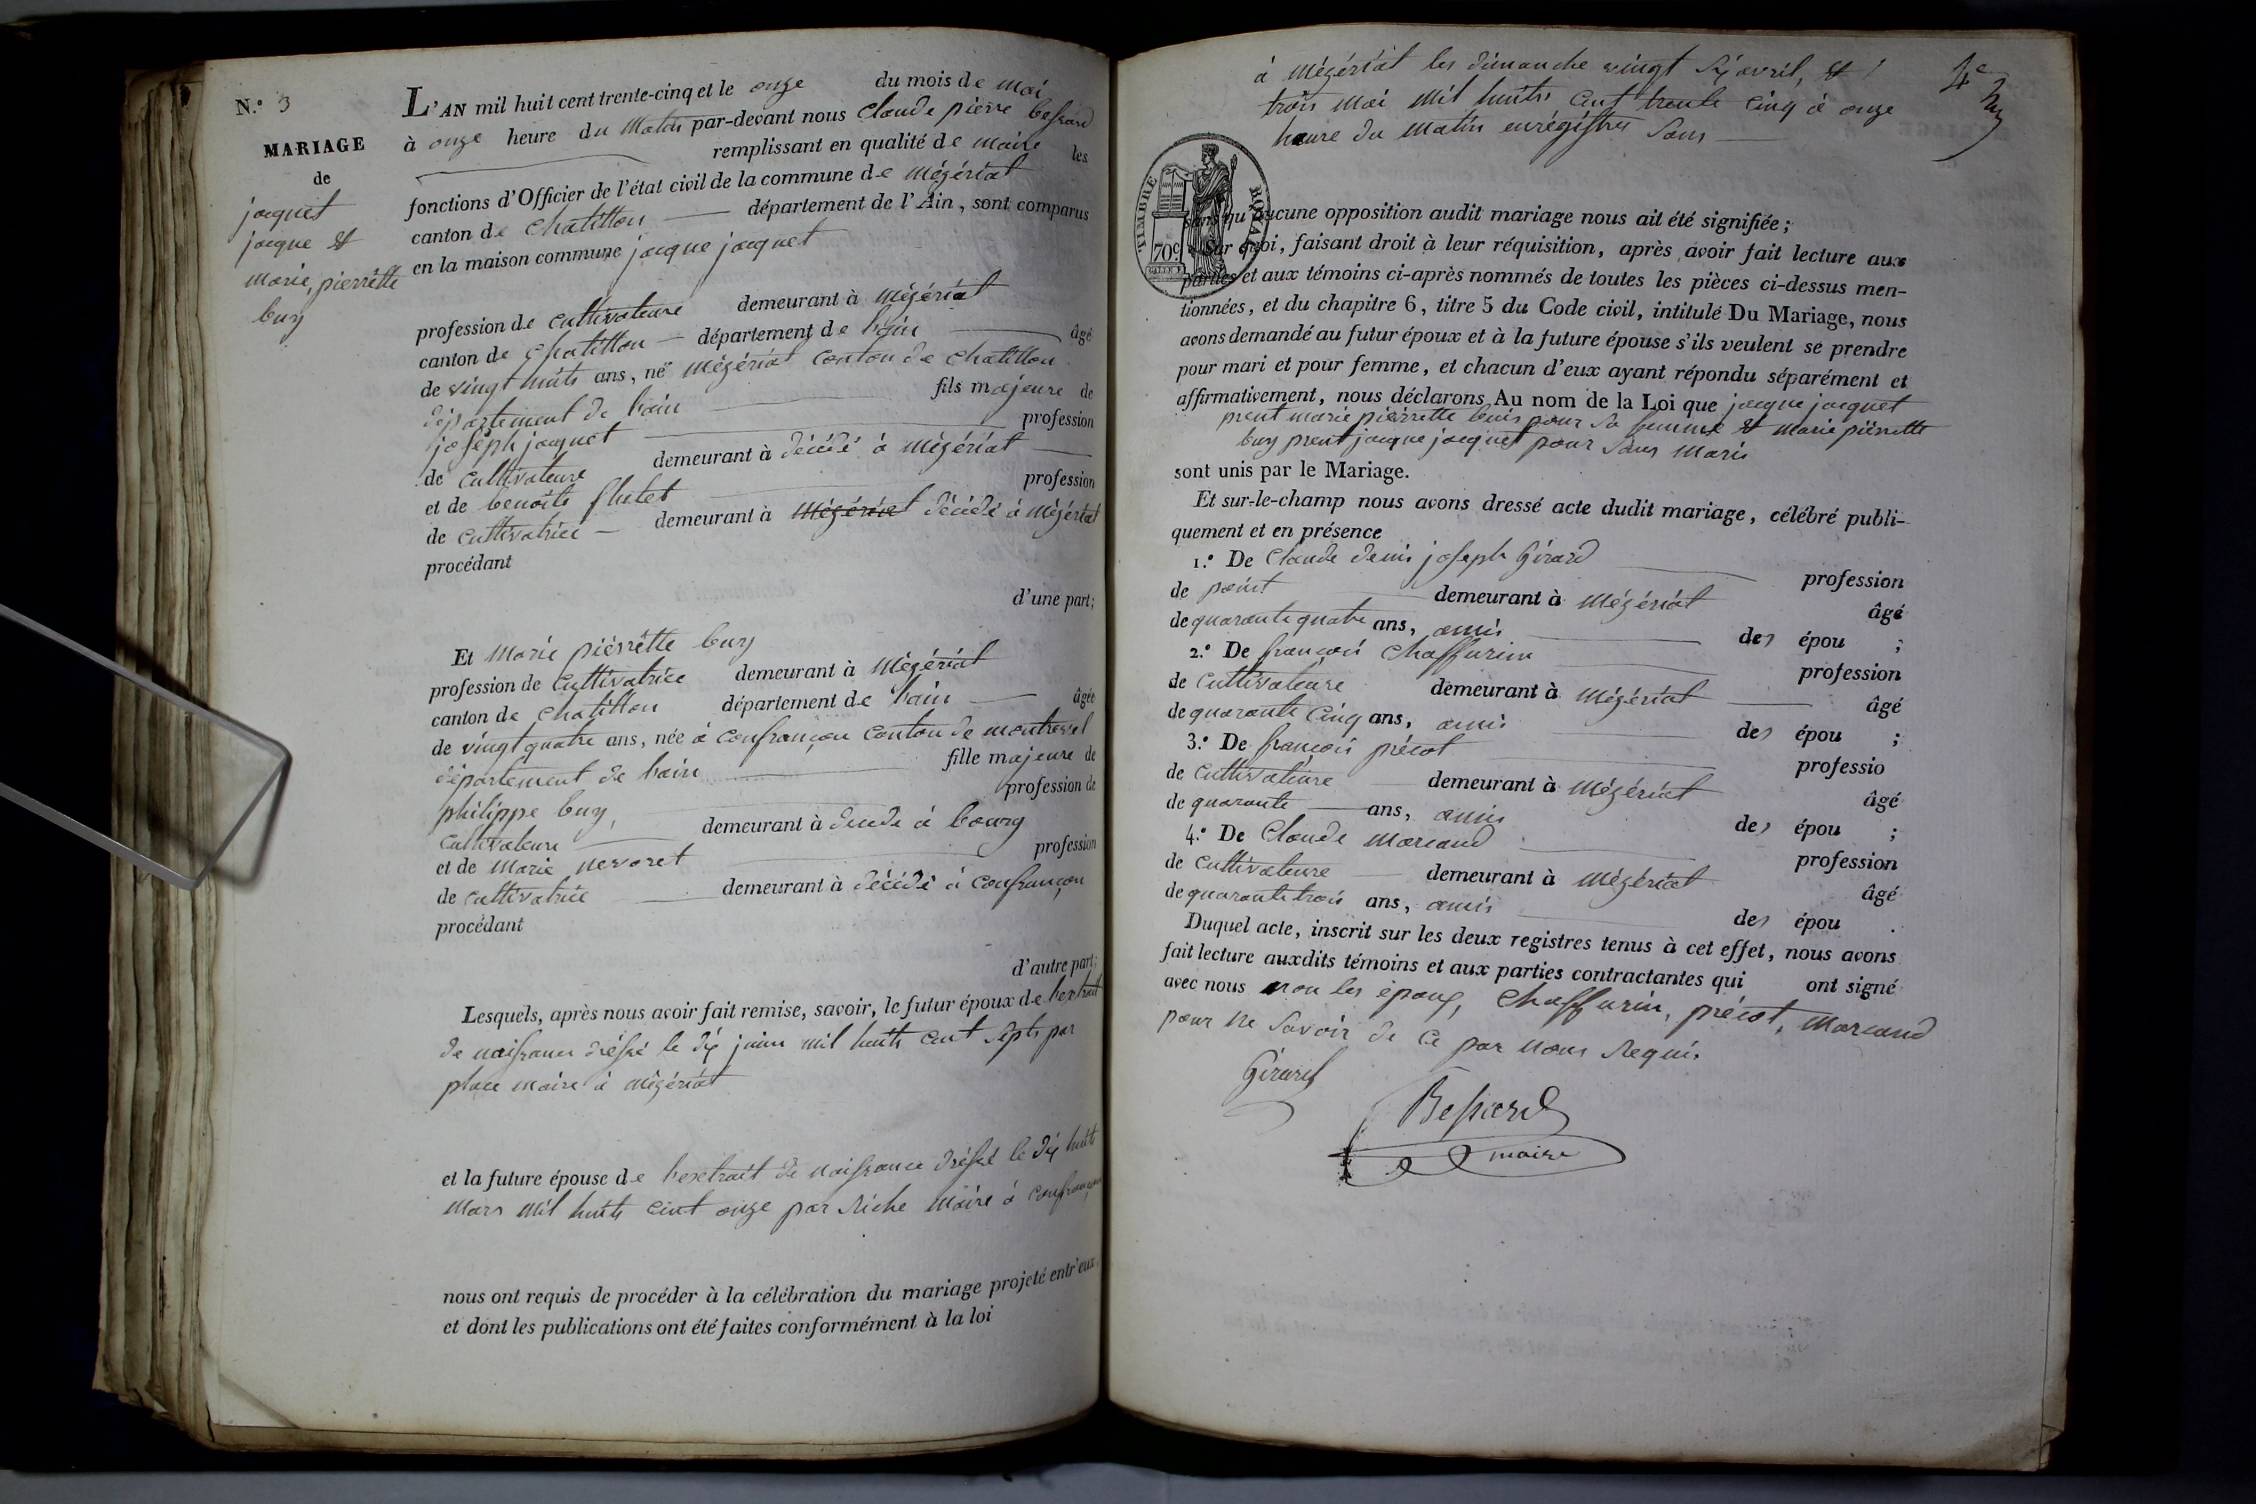 N.° 3
MARIAGE
de
jacquet
jacque et
marie, pierrètte
buy
L'AN mil huit cent trente-cinq et le onze du mois de mai
à onze heure du Matin par-devant nous Claude pierre Bessard
remplissant en qualité de maire les
fonctions d'Officier de l'état civil de la commune de Mézériat
canton de Chatillon département de l'Ain, sont comparus
en la maison commune jacque jacquet
profession de cultivateure demeurant à Mézériat
canton de Chatillon département de lain âgé
de vingt huits ans, né Mézériat canton de Chatillon
département de lain fils majeure de
joseph jacquet profession
de Cultivateure demeurant à décédé à Mézériat
et de benoite flutet profession
de Cultivatrice demeurant à Mézériat décédé à Mézériat
procédant
d'une part;
Et Marie pièrrètte buy
profession de Cultivatrice demeurant à Mézériat
canton de Chatillon département de lain âgée
de vingt quatre ans, née à confrançon canton de montrevel
département de lain fille majeure de
philippe buy, profession de
Cultivateure demeurant à décédé à bourg
et de Marie nevoret profession
de Cultivatrice demeurant à décédé à confrançon
procédant
d'autre part;
Lesquels, après nous avoir fait remise, savoir, le futur époux de lextrait
de naissance dréssé le dix juin mil huits cent septs par
place maire à Mézériat
et la future épouse de lexetrait de naissance dréssé le dix huit
Mars mil huits cent onze par Riche Maire à confrançon
nous ont requis de procéder à la célébration du mariage projeté entr'eux,
et dont les publications ont été faites conformément à la loi
à Mézériat les dimanche vingt six avril, et
trois mai mil huits cent trente cinq à onze
heure du Matin enrégistrés sans
4e
TIMBRE ROYAL
70c
sans qu'aucune opposition audit mariage nous ait été signifiée;
Sur quoi, faisant droit à leur réquisition, après avoir fait lecture aux
parties et aux témoins ci-après nommés de toutes les pièces ci-dessus men-
tionnées, et du chapitre 6, titre 5 du Code civil, intitulé Du Mariage, nous
avons demandé au futur époux et à la future épouse s'ils veulent se prendre
pour mari et pour femme, et chacun d'eux ayant répondu séparément et
affirmativement, nous déclarons Au nom de la Loi que jacque jacquet
prent marie pièrrette buis pour sa femme et marie pièrrette
buy prent jacque jacquet pour sons maris
sont unis par le Mariage.
Et sur-le-champ nous avons dressé acte dudit mariage, célébré publi-
quement et en présence
1.° De Claude denis joseph Girard profession
de point demeurant à Mézériat âgé
de quarante quatre ans, amis des épou ;
2.° De françois Chaffurin profession
de Cultivateure demeurant à Mézériat âgé
de quarante cinq ans, amis des épou ;
3.° De françois précot professio
de Cultivateure demeurant à Mézériat âgé
de quarante ans, amis des épou ;
4.° De Claude Morcand profession
de Cultivateure demeurant à Mézériat âgé
de quarante trois ans, amis des épou .
Duquel acte, inscrit sur les deux registres tenus à cet effet, nous avons
fait lecture auxdits témoins et aux parties contractantes qui ont signé
avec nous non les époux, Chaffurin, précot, Morcand
pour ne savoir de ce par nous Requis
Girard
Bessard
maire